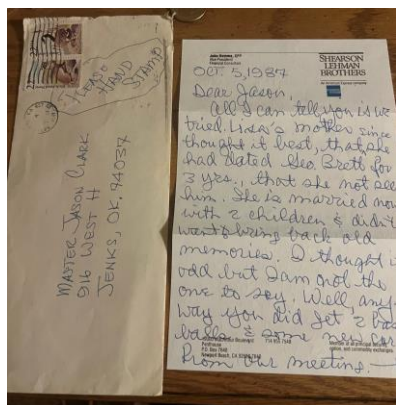 PLEASE
HAND
STAMP
MASTER JASON CLARK
916 WEST H
JENKS, OK. 74037
Vice President
SHEARSON
LEHMAN
BROTHERS
OCT. 5, 1987
Dear Jason,
All I can tell you is we
tried. Lisa's mother since
thought it best, that she
had dated Geo. Brett for
3 yrs., that she not see
him. She is married now
with 2 children & didn't
want to bring back old
memories. I thought it
odd but I am not the
one to say. Well any
way you did get 2 base
balls & some new
from our meeting.
P.O. Box 7940
Newport Beach, CA